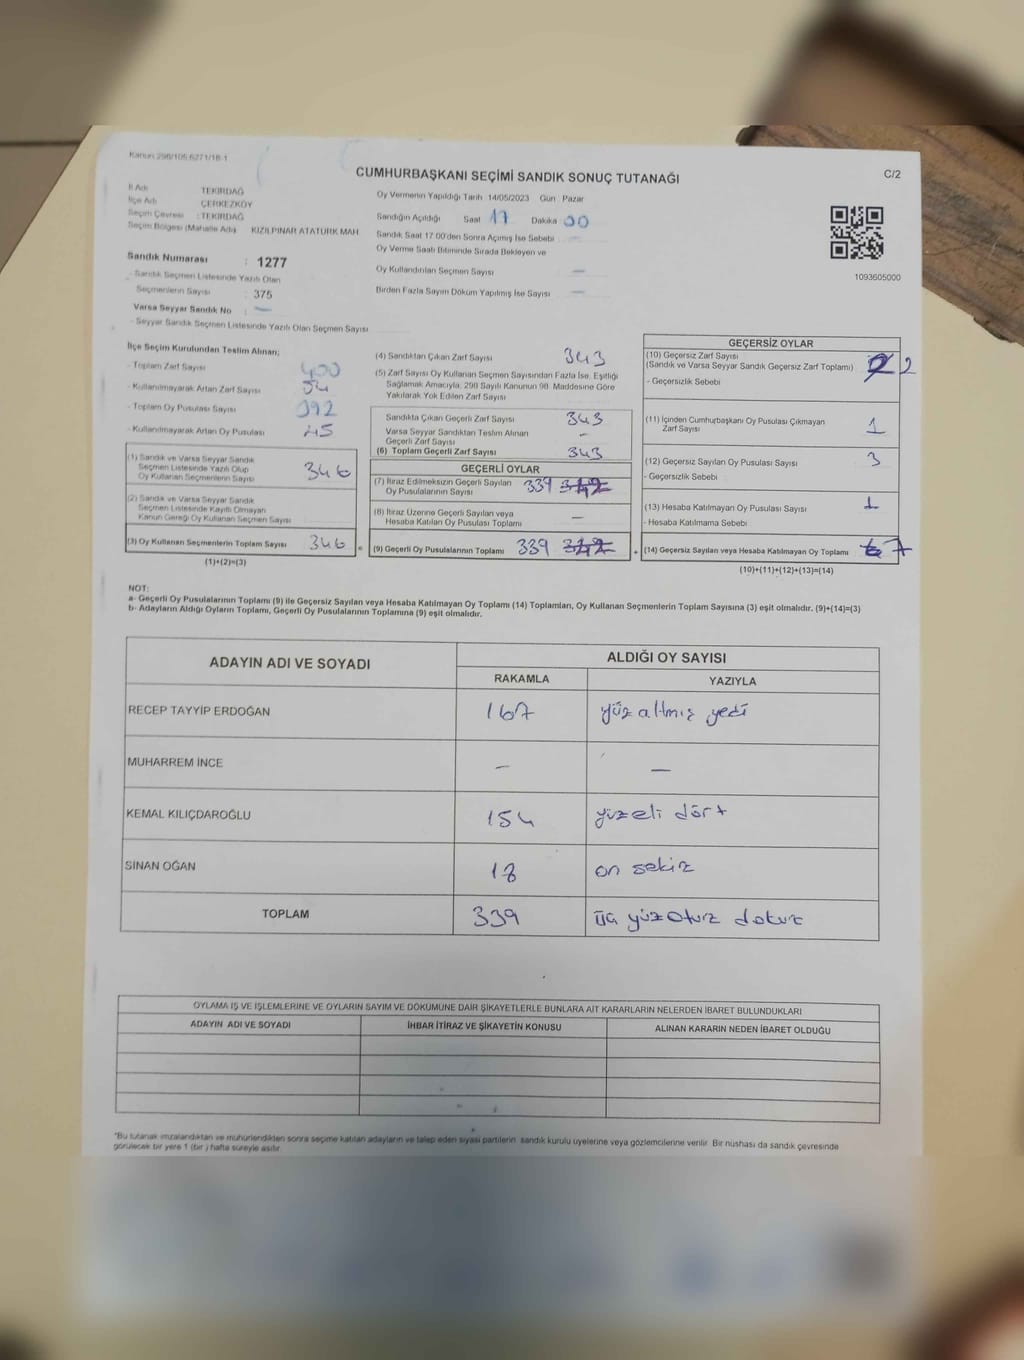 Kanun 298/105,6271/18-1
CUMHURBAŞKANI SEÇİMİ SANDIK SONUÇ TUTANAĞI
C/2
İl Adı TEKİRDAĞ
İlçe Adı ÇERKEZKÖY
Seçim Çevresi : TEKİRDAĞ
Seçim Bölgesi (Mahalle Adı) KIZILPINAR ATATÜRK MAH
Oy Vermenin Yapıldığı Tarih 14/05/2023 Gün : Pazar
Sandığın Açıldığı Saat 17 Dakika 00
Sandık Saat 17:00'den Sonra Açılmış İse Sebebi —
Oy Verme Saati Bitiminde Sırada Bekleyen ve
Oy Kullandırılan Seçmen Sayısı —
Birden Fazla Sayım Döküm Yapılmış İse Sayısı —
1093605000
Sandık Numarası : 1277
- Sandık Seçmen Listesinde Yazılı Olan
Seçmenlerin Sayısı : 375
Varsa Seyyar Sandık No : —
- Seyyar Sandık Seçmen Listesinde Yazılı Olan Seçmen Sayısı
İlçe Seçim Kurulundan Teslim Alınan;
- Toplam Zarf Sayısı 400
- Kullanılmayarak Artan Zarf Sayısı 54
- Toplam Oy Pusulası Sayısı 392
- Kullanılmayarak Artan Oy Pusulası 45
(1) Sandık ve Varsa Seyyar Sandık
Seçmen Listesinde Yazılı Olup
Oy Kullanan Seçmenlerin Sayısı 346
(2) Sandık ve Varsa Seyyar Sandık
Seçmen Listesinde Kayıtlı Olmayan
Kanun Gereği Oy Kullanan Seçmen Sayısı
(3) Oy Kullanan Seçmenlerin Toplam Sayısı 346
(1)+(2)=(3)
(4) Sandıktan Çıkan Zarf Sayısı 343
(5) Zarf Sayısı Oy Kullanan Seçmen Sayısından Fazla İse, Eşitliği
Sağlamak Amacıyla, 298 Sayılı Kanunun 98. Maddesine Göre
Yakılarak Yok Edilen Zarf Sayısı
Sandıkta Çıkan Geçerli Zarf Sayısı 343
Varsa Seyyar Sandıktan Teslim Alınan
Geçerli Zarf Sayısı —
(6) Toplam Geçerli Zarf Sayısı 343
GEÇERLİ OYLAR
(7) İtiraz Edilmeksizin Geçerli Sayılan
Oy Pusulalarının Sayısı 339 342
(8) İtiraz Üzerine Geçerli Sayılan veya
Hesaba Katılan Oy Pusulası Toplamı —
(9) Geçerli Oy Pusulalarının Toplamı 339 342
GEÇERSİZ OYLAR
(10) Geçersiz Zarf Sayısı
(Sandık ve Varsa Seyyar Sandık Geçersiz Zarf Toplamı) 2
- Geçersizlik Sebebi
(11) İçinden Cumhurbaşkanı Oy Pusulası Çıkmayan
Zarf Sayısı 1
(12) Geçersiz Sayılan Oy Pusulası Sayısı 3
- Geçersizlik Sebebi
(13) Hesaba Katılmayan Oy Pusulası Sayısı 1
- Hesaba Katılmama Sebebi
(14) Geçersiz Sayılan veya Hesaba Katılmayan Oy Toplamı 7
(10)+(11)+(12)+(13)=(14)
NOT:
a- Geçerli Oy Pusulalarının Toplamı (9) ile Geçersiz Sayılan veya Hesaba Katılmayan Oy Toplamı (14) Toplamları, Oy Kullanan Seçmenlerin Toplam Sayısına (3) eşit olmalıdır. (9)+(14)=(3)
b- Adayların Aldığı Oyların Toplamı, Geçerli Oy Pusulalarının Toplamına (9) eşit olmalıdır.
ADAYIN ADI VE SOYADI ALDIĞI OY SAYISI
RAKAMLA YAZIYLA
RECEP TAYYİP ERDOĞAN 167 yüz altmış yedi
MUHARREM İNCE — —
KEMAL KILIÇDAROĞLU 154 yüzelli dört
SİNAN OĞAN 18 on sekiz
TOPLAM 339 üç yüzotuz dokuz
OYLAMA İŞ VE İŞLEMLERİNE VE OYLARIN SAYIM VE DÖKÜMÜNE DAİR ŞİKAYETLERLE BUNLARA AİT KARARLARIN NELERDEN İBARET BULUNDUKLARI
ADAYIN ADI VE SOYADI İHBAR İTİRAZ VE ŞİKAYETİN KONUSU ALINAN KARARIN NEDEN İBARET OLDUĞU
*Bu tutanak imzalandıktan ve mühürlendikten sonra seçime katılan adayların ve talep eden siyasi partilerin sandık kurulu üyelerine veya gözlemcilerine verilir. Bir nüshası da sandık çevresinde
görülecek bir yere 1 (bir) hafta süreyle asılır.